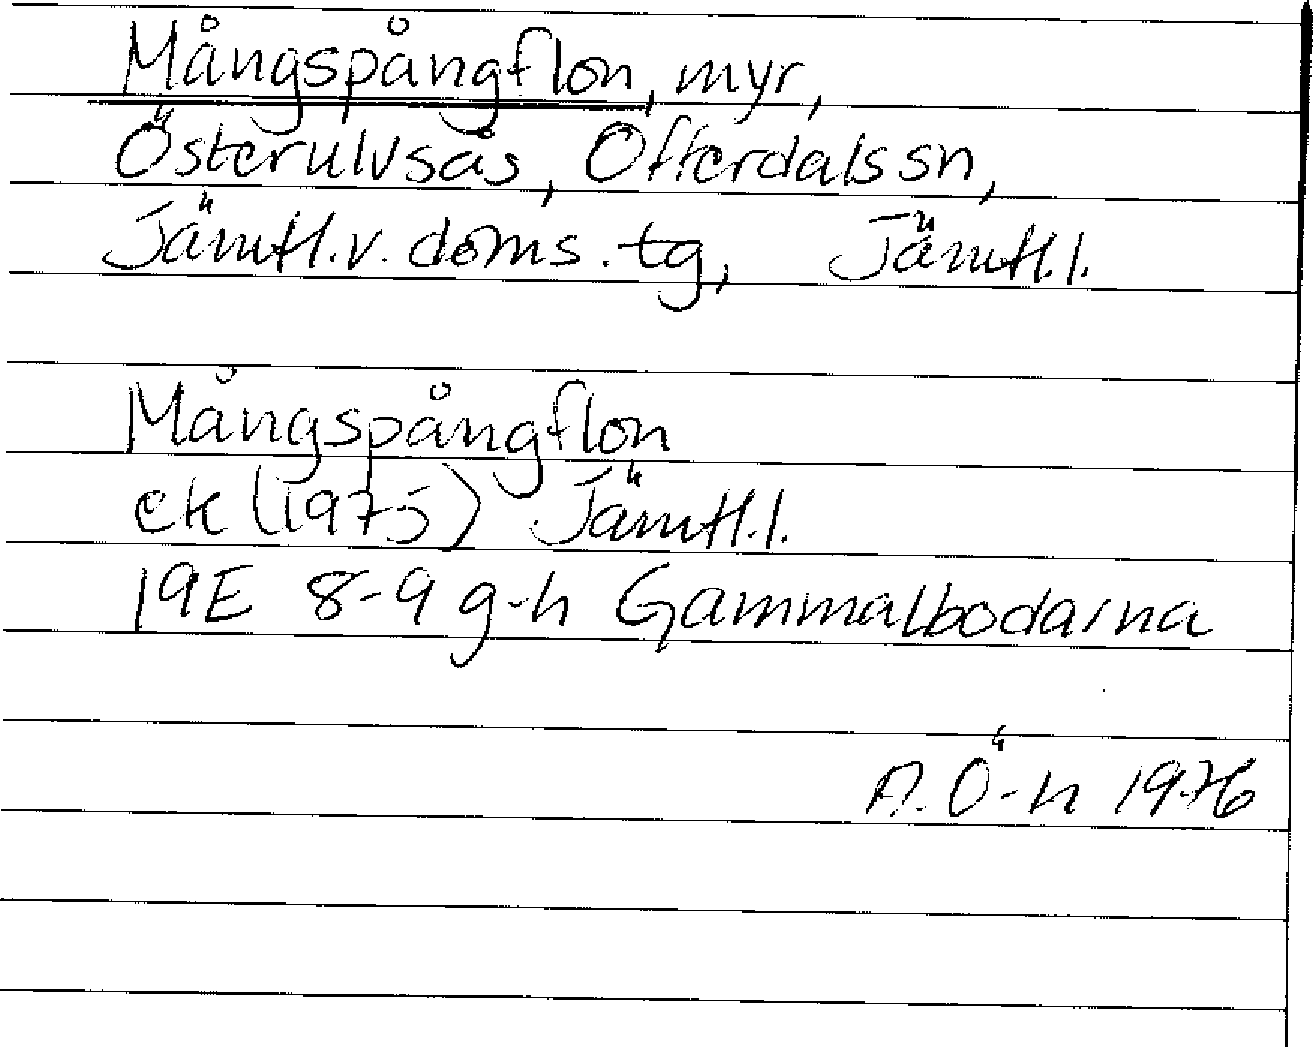 Mångspångflon, myr,
Österulvsås, Offerdals sn,
Jämtl.v. doms. tg, Jämtl.l.
Mångspångflon
ek (1975) Jämtl.l.
19E 8-9 g-h Gammalbodarna
A. Ö-n 1976